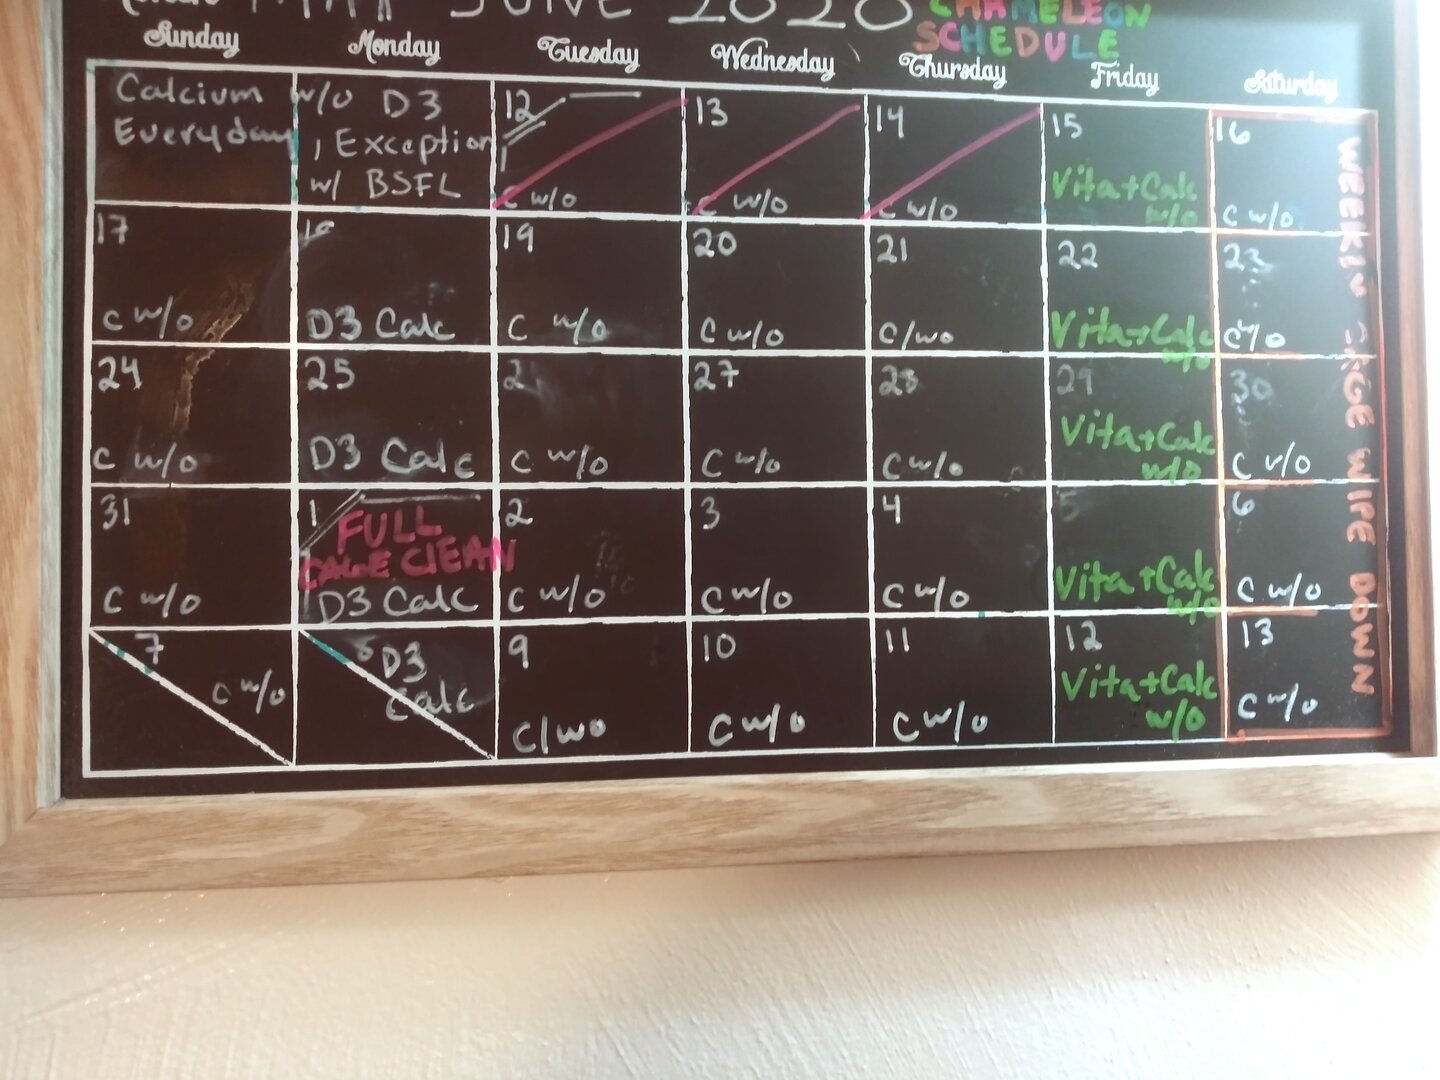 MAY JUNE 2020 CHAMELEON
SCHEDULE
Sunday Monday Tuesday Wednesday Thursday Friday Saturday
Calcium w/o D3
Everyday, Exception
w/ BSFL
12 13 14 15 16
C w/o C w/o C w/o Vita+Calc w/o C w/o
17 18 19 20 21 22 23
C w/o D3 Calc C w/o C w/o C/wo Vita+Calc w/o C w/o
24 25 27 28 29 30
C w/o D3 Calc C w/o C w/o C w/o Vita+Calc w/o C w/o
31 1 2 3 4 5 6
FULL
CAGE CLEAN
C w/o D3 Calc C w/o C w/o C w/o Vita+Calc w/o C w/o
7 8 9 10 11 12 13
C w/o D3 Calc C/wo C w/o C w/o Vita+Calc w/o C w/o
WEEKLY CAGE WIPE DOWN